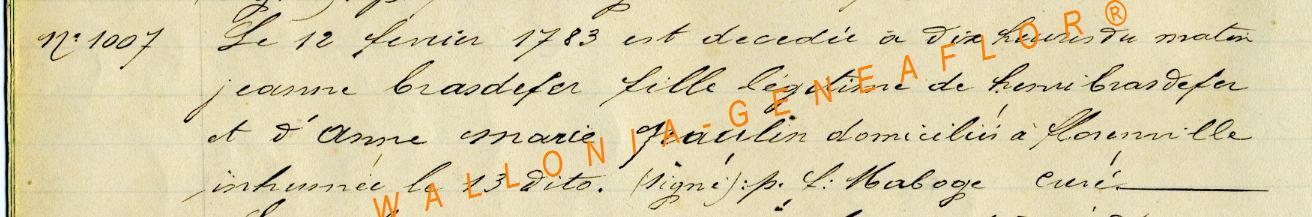 N° 1007 Le 12 fevrier 1783 est decedée à dix heures du matin
jeanne brasdefer fille légitime de henri brasdefer
et d'anne marie paulin domiciliés à florenville
inhumée le 13 dito. (signé): p. f. Maboge curé.
WALLONIA-GENEAFLOR®